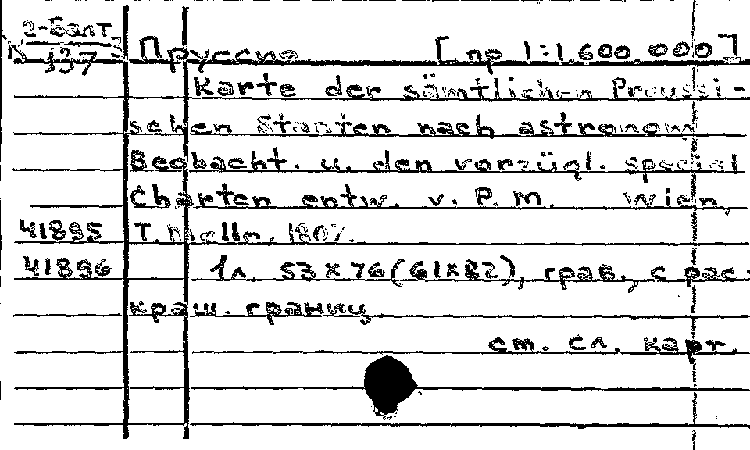 2-Балт.
K 137 Пруссия [пр 1:1.600.000]
Karte der sämtlichen Preussi-
schen Staaten nach astronom
Beobacht. u. den vorzügl. special
Charten entw. v. P. M. Wien,
41895 T. Mollo, 1807.
41896 1л. 53×76(61×82), грав., с рас-
краш. границ.
см. сл. карт.